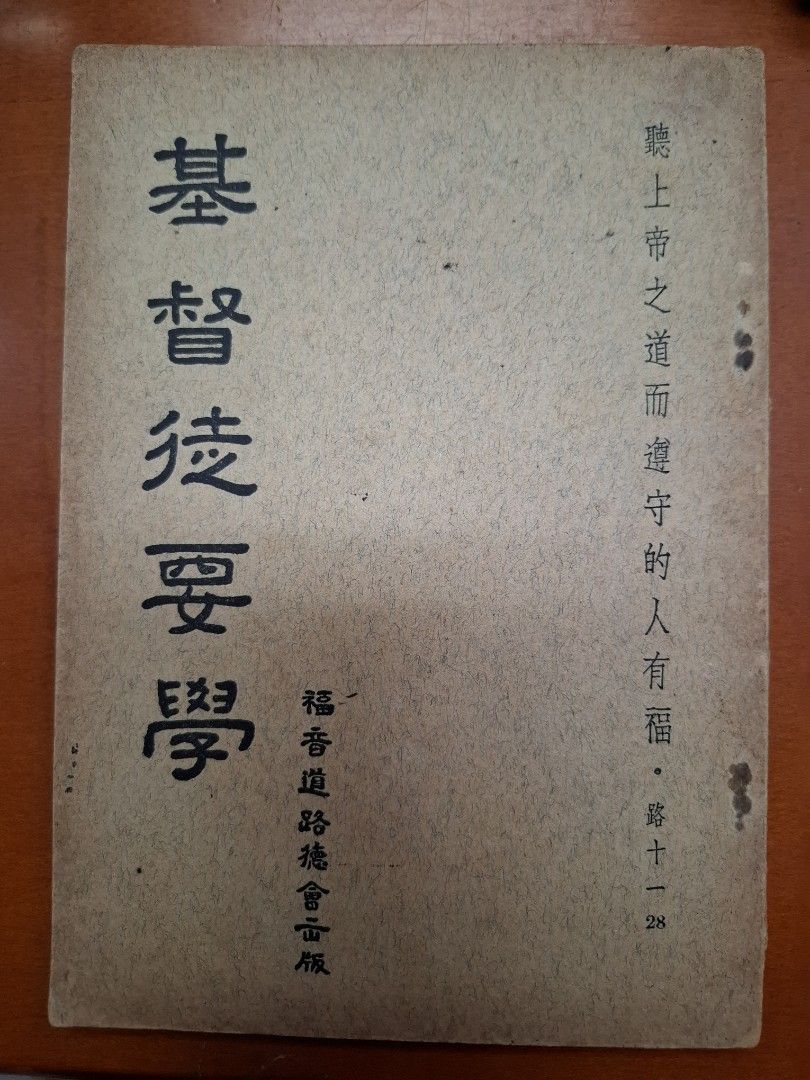 聽上帝之道而遵守的人有福。路十一28
福音道路德會出版
基督徒要學